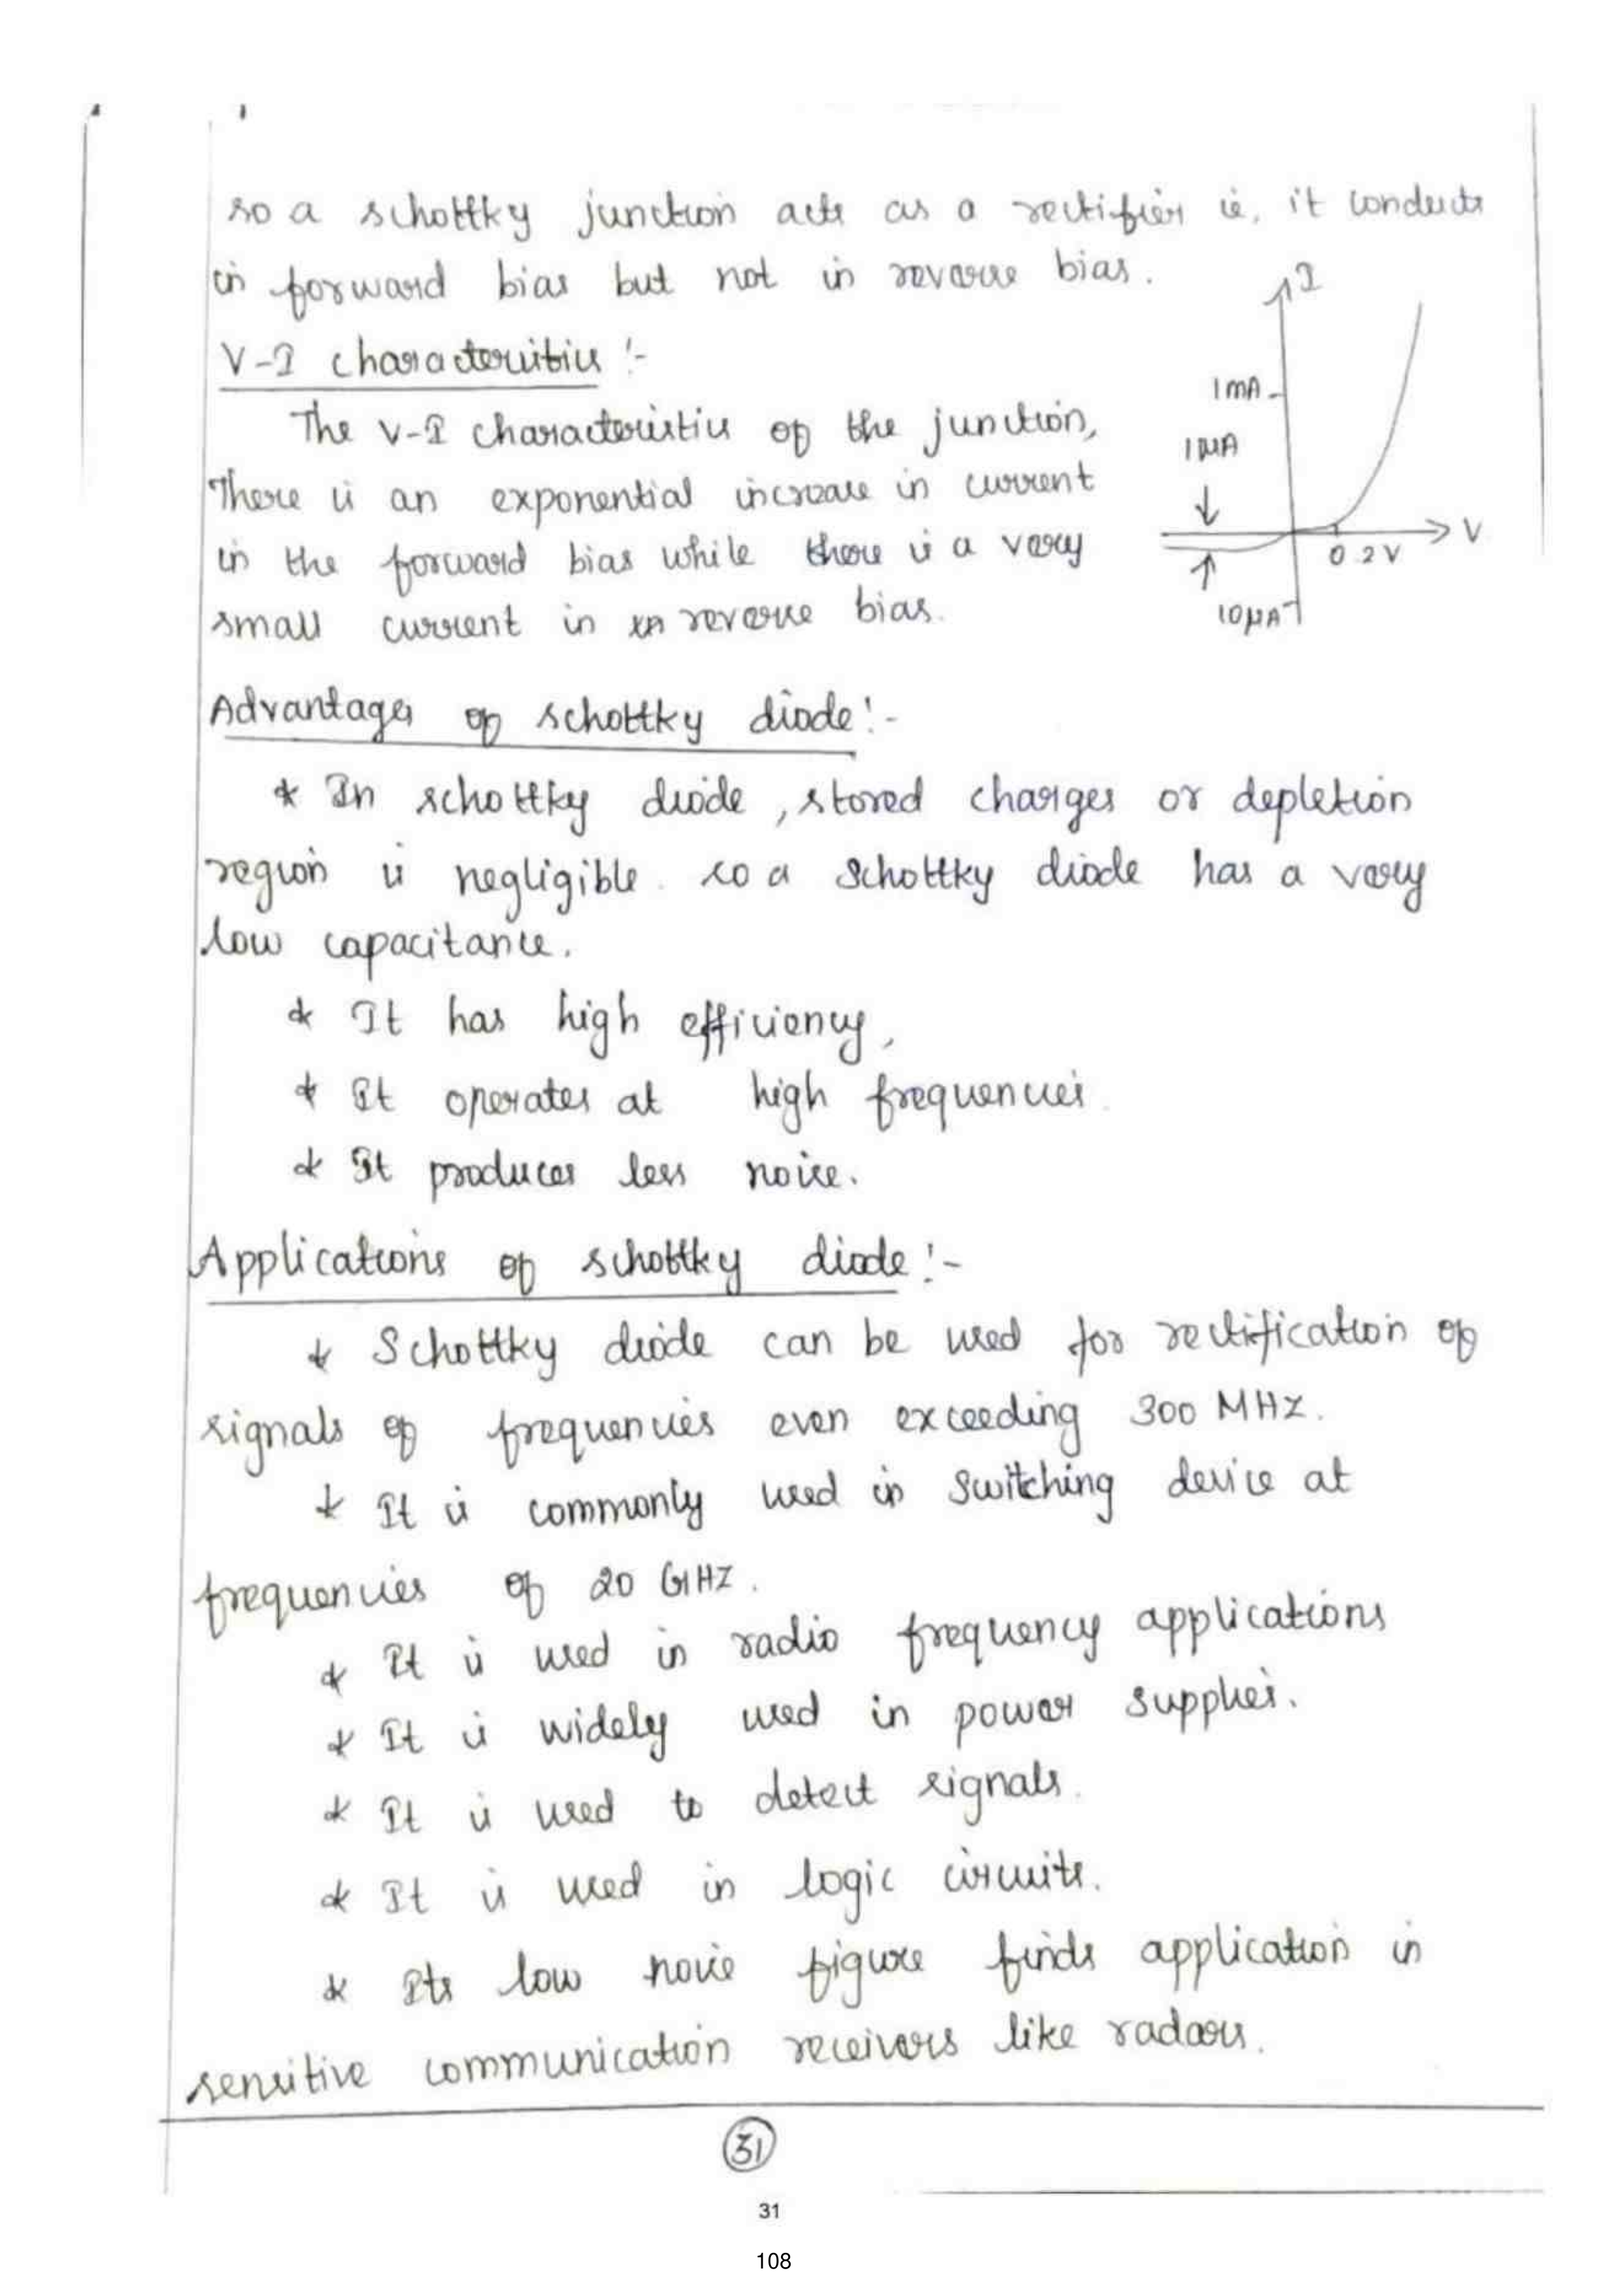 so a schottky junction acts as a rectifier ie, it conducts
in forward bias but not in reverse bias.
I
V-I characteristics :-
1mA
The V-I characteristics of the junction,
1μA
There is an exponential increase in current
V
0.2V
in the forward bias while there is a very
10μA
small current in in reverse bias.
Advantages of schottky diode :-
* In schottky diode, stored charges or depletion
region is negligible. so a Schottky diode has a very
low capacitance.
* It has high efficiency,
* It operates at high frequencies.
* It produces less noise.
Applications of schottky diode :-
* Schottky diode can be used for rectification of
signals of frequencies even exceeding 300 MHz.
* It is commonly used in switching device at
frequencies of 20 GHz.
* It is used in radio frequency applications
* It is widely used in power supplies.
* It is used to detect signals.
* It is used in logic circuits.
* Its low noise figure finds application in
sensitive communication receivers like radars.
31
31
108